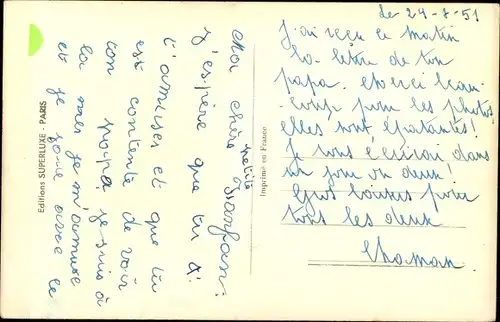 le 24-7-51
Ma chère petite
J'espère que tu
t'amuses et que tu
est contente de voir
ton papa. je suis à
la mer je m'amuse
et je joue avec le
J'ai reçu ce matin
la lettre de ton
papa. Merci beau-
coup pour les photos,
elles sont épatantes!
Je vous écrirai dans
un jour ou deux!
Gros baisers pour
tous les deux
Maman.
Editions SUPERLUXE - PARIS
Imprimé en France